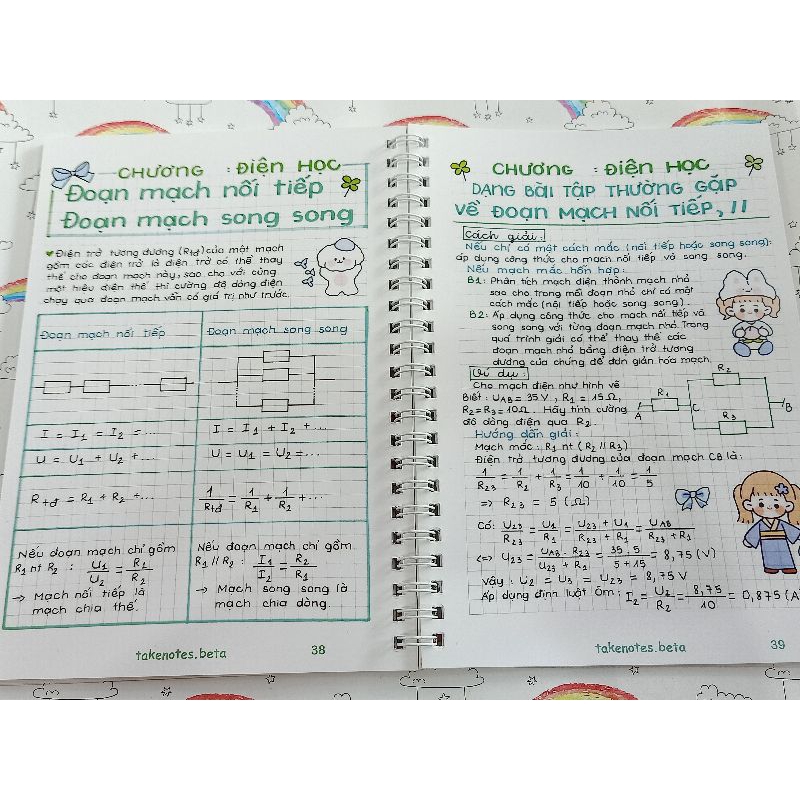 CHƯƠNG : ĐIỆN HỌC
Đoạn mạch nối tiếp
Đoạn mạch song song
Điện trở tương đương (Rtđ) của một mạch
gồm các điện trở là điện trở có thể thay
thế cho đoạn mạch này, sao cho với cùng
một hiệu điện thế thì cường độ dòng điện
chạy qua đoạn mạch vẫn có giá trị như trước.
Đoạn mạch nối tiếp
Đoạn mạch song song
I = I1 = I2 = ...
I = I1 + I2 + ...
U = U1 + U2 + ...
U = U1 = U2 = ...
Rtđ = R1 + R2 + ...
1/Rtđ = 1/R1 + 1/R2 + ...
Nếu đoạn mạch chỉ gồm
R1 nt R2 : U1/U2 = R2/R2
→ Mạch nối tiếp là
mạch chia thế.
Nếu đoạn mạch chỉ gồm
R1 // R2 : I1/I2 = R2/R1
→ Mạch song song là
mạch chia dòng.
takenotes.beta 38
CHƯƠNG : ĐIỆN HỌC
DẠNG BÀI TẬP THƯỜNG GẶP
VỀ ĐOẠN MẠCH NỐI TIẾP, //
Cách giải:
Nếu chỉ có một cách mắc (nối tiếp hoặc song song):
áp dụng công thức cho mạch nối tiếp và song song.
Nếu mạch mắc hỗn hợp:
B1: Phân tích mạch điện thành mạch nhỏ
sao cho trong mỗi đoạn nhỏ chỉ có một
cách mắc (nối tiếp hoặc song song).
B2: Áp dụng công thức cho mạch nối tiếp và
song song với từng đoạn mạch nhỏ. Trong
quá trình giải có thể thay thế các
đoạn mạch nhỏ bằng điện trở tương
đương của chúng để đơn giản hóa mạch.
Ví dụ:
Cho mạch điện như hình vẽ
Biết: UAB = 35V, R1 = 15Ω,
R2 = R3 = 10Ω. Hãy tính cường
độ dòng điện qua R2.
R1
R2
R3
A
C
B
Hướng dẫn giải:
Mạch mắc: R1 nt (R2 // R3)
Điện trở tương đương của đoạn mạch CB là:
1/R23 = 1/R2 + 1/R3 = 1/10 + 1/10 = 1/5
=> R23 = 5 (Ω)
Có: U23/R23 = U1/R1 = U23 + U1/R23 + R1 = UAB/R23 + R1
<=> U23 = UAB . R23/R23 + R1 = 35 . 5/5 + 15 = 8,75 (V)
Vậy: U2 = U3 = U23 = 8,75 V
Áp dụng định luật Ôm: I2 = U2/R2 = 8,75/10 = 0,875 (A
takenotes.beta 39